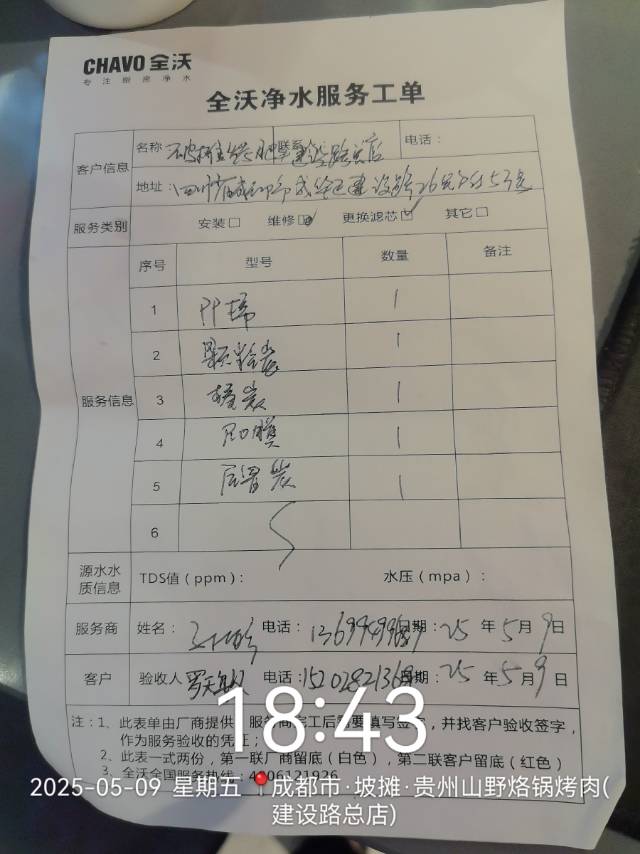 CHAVO 全沃
专注厨房净水
全沃净水服务工单
客户信息
名称： 联系 建设路总店 电话：
地址： 四川省成都市成华区建设路26号附57号
服务类别 安装□ 维修☑ 更换滤芯☑ 其它□
服务信息
序号 型号 数量 备注
1 PP棉 1
2 颗粒炭 1
3 1
4 RO膜 1
5 后置炭 1
6
源水水质信息 TDS值（ppm）： 水压（mpa）：
服务商 姓名： 电话： 日期：25 年 5 月 9 日
客户 验收人 电话： 日期：25 年 5 月 9 日
注：1、此表单由厂商提供，服务商完工后需要填写签字，并找客户验收签字，
作为服务验收的凭证；
2、此表一式两份，第一联厂商留底（白色），第二联客户留底（红色）
3、全沃全国服务热线：4006121926
18:43
2025-05-09 星期五 成都市·坡摊·贵州山野烙锅烤肉(
建设路总店)